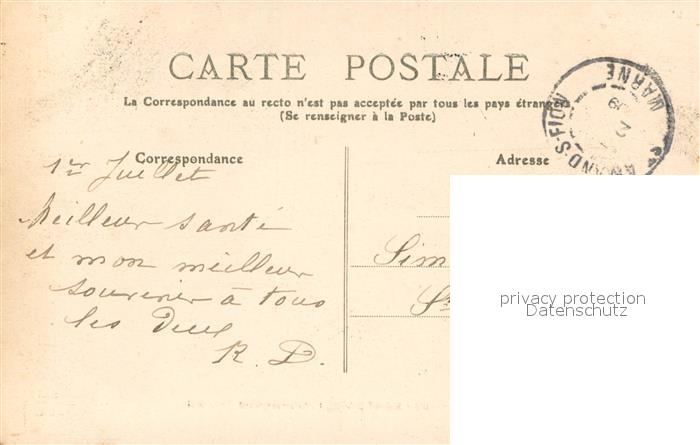 CARTE POSTALE
La Correspondance au recto n'est pas acceptée par tous les pays étrangers
(Se renseigner à la Poste)
Correspondance
1er Juillet
Meilleur santé
et mon meilleur
souvenir à tous
les Deux
R. D.
Adresse
Sim
St
AMAND-S-FION
MARNE
privacy protection
Datenschutz